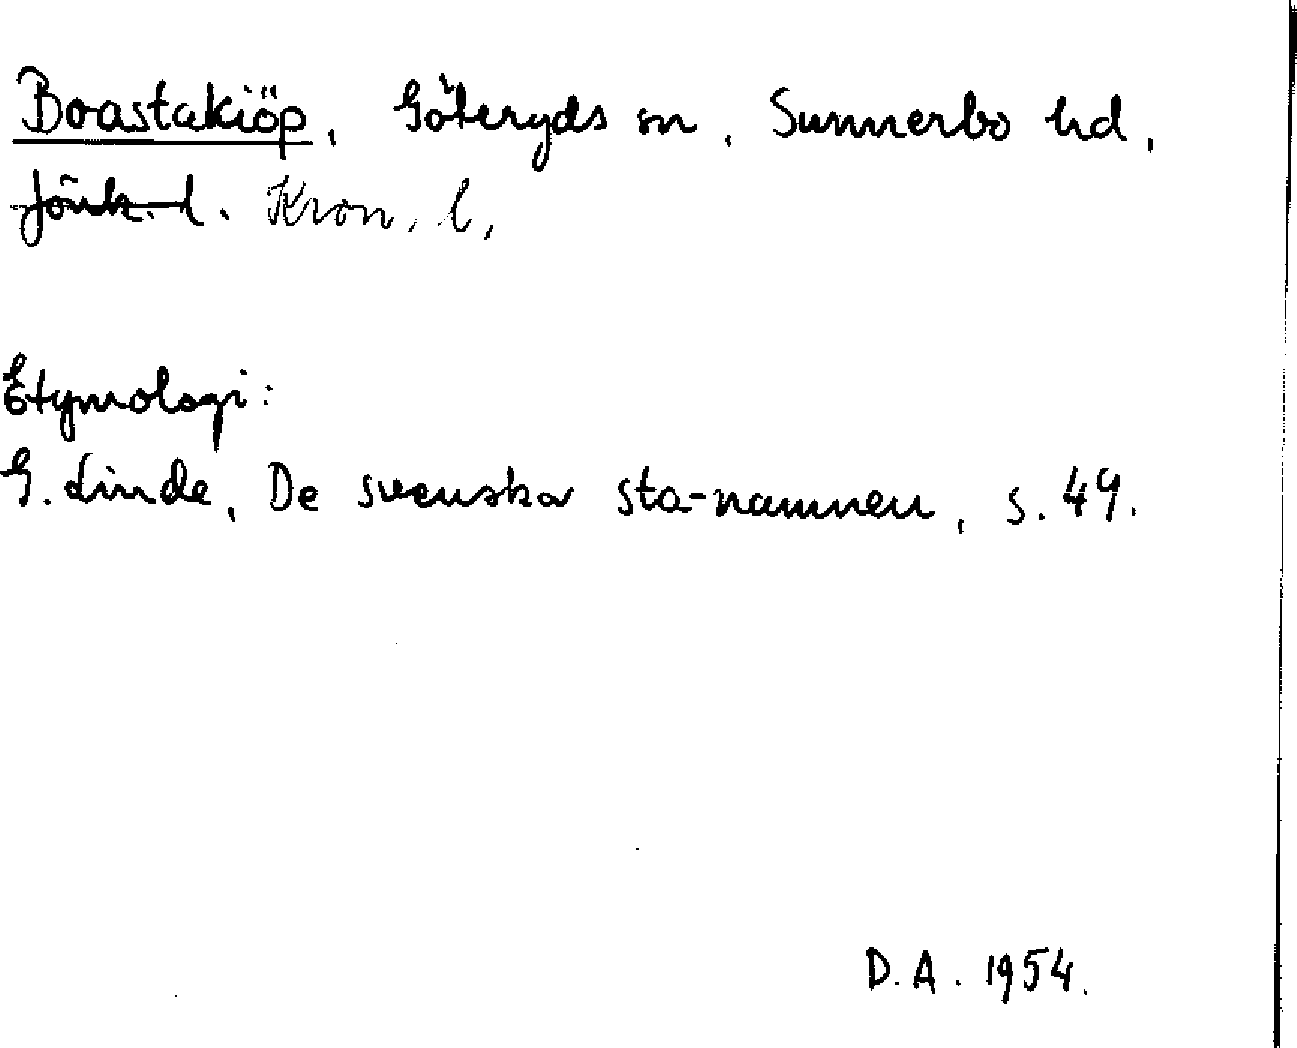 Boastakiöp, Göteryds sn, Sunnerbo hd,
Jönk. l. Kron. l,
Etymologi:
G. Linde, De svenska sta-namnen, s. 49.
D. A. 1954.